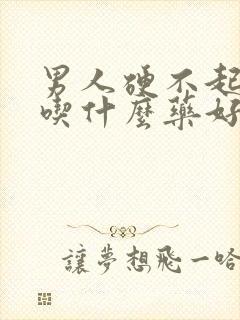 男人硬不起
喫什麼藥好
讓夢想飛一哈